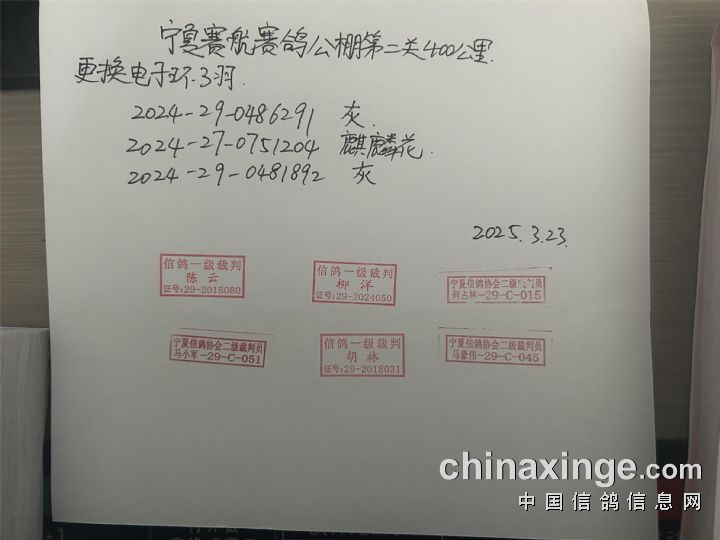 宁夏赛航赛鸽公棚第二关400公里.
更换电子环3羽.
2024-29-0486291 灰.
2024-27-0751204 麒麟花.
2024-29-0481892 灰
2025.3.23.
信鸽一级裁判
陈云
证号:29-2018080
信鸽一级裁判
柳洋
证号:29-2024050
宁夏信鸽协会二级裁判员
何占林-29-C-015
宁夏信鸽协会二级裁判员
马小军-29-C-051
信鸽一级裁判
胡林
证号:29-2018031
宁夏信鸽协会二级裁判员
马豪伟-29-C-045
chinaxinge.com
中国信鸽信息网